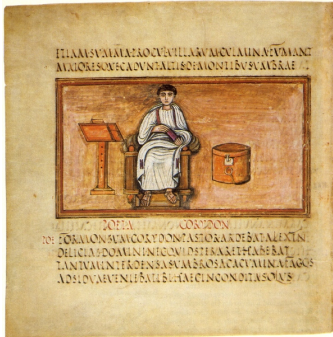 ETIAMSVMMAPROCVLVILLARVMCVLMINAFVMANT
MAIORESQVECADVNTALTISDEMONTIBVSVMBRAE
POETA CORYDON
POE FORMONSVMCORYDONPASTORARDEBATALEXIN
DELICIASDOMININECQVIDSPERARETHABEBAT
TANTVMINTERDENSASVMBROSACACVMINAFAGOS
ADSIDVEVENIEBATIBIHAECINCONDITASOLVS